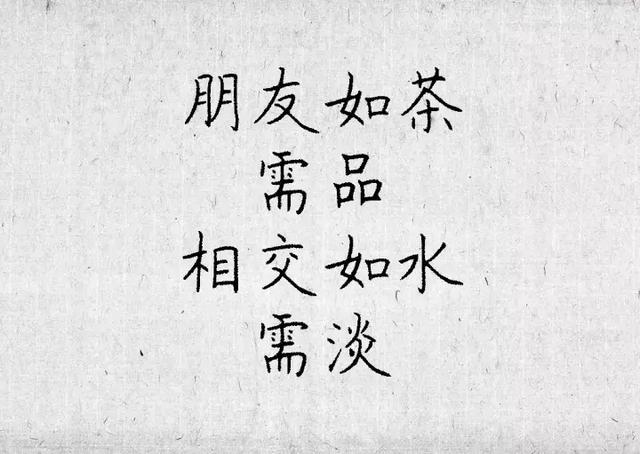 朋友如茶
需品
相交如水
需淡